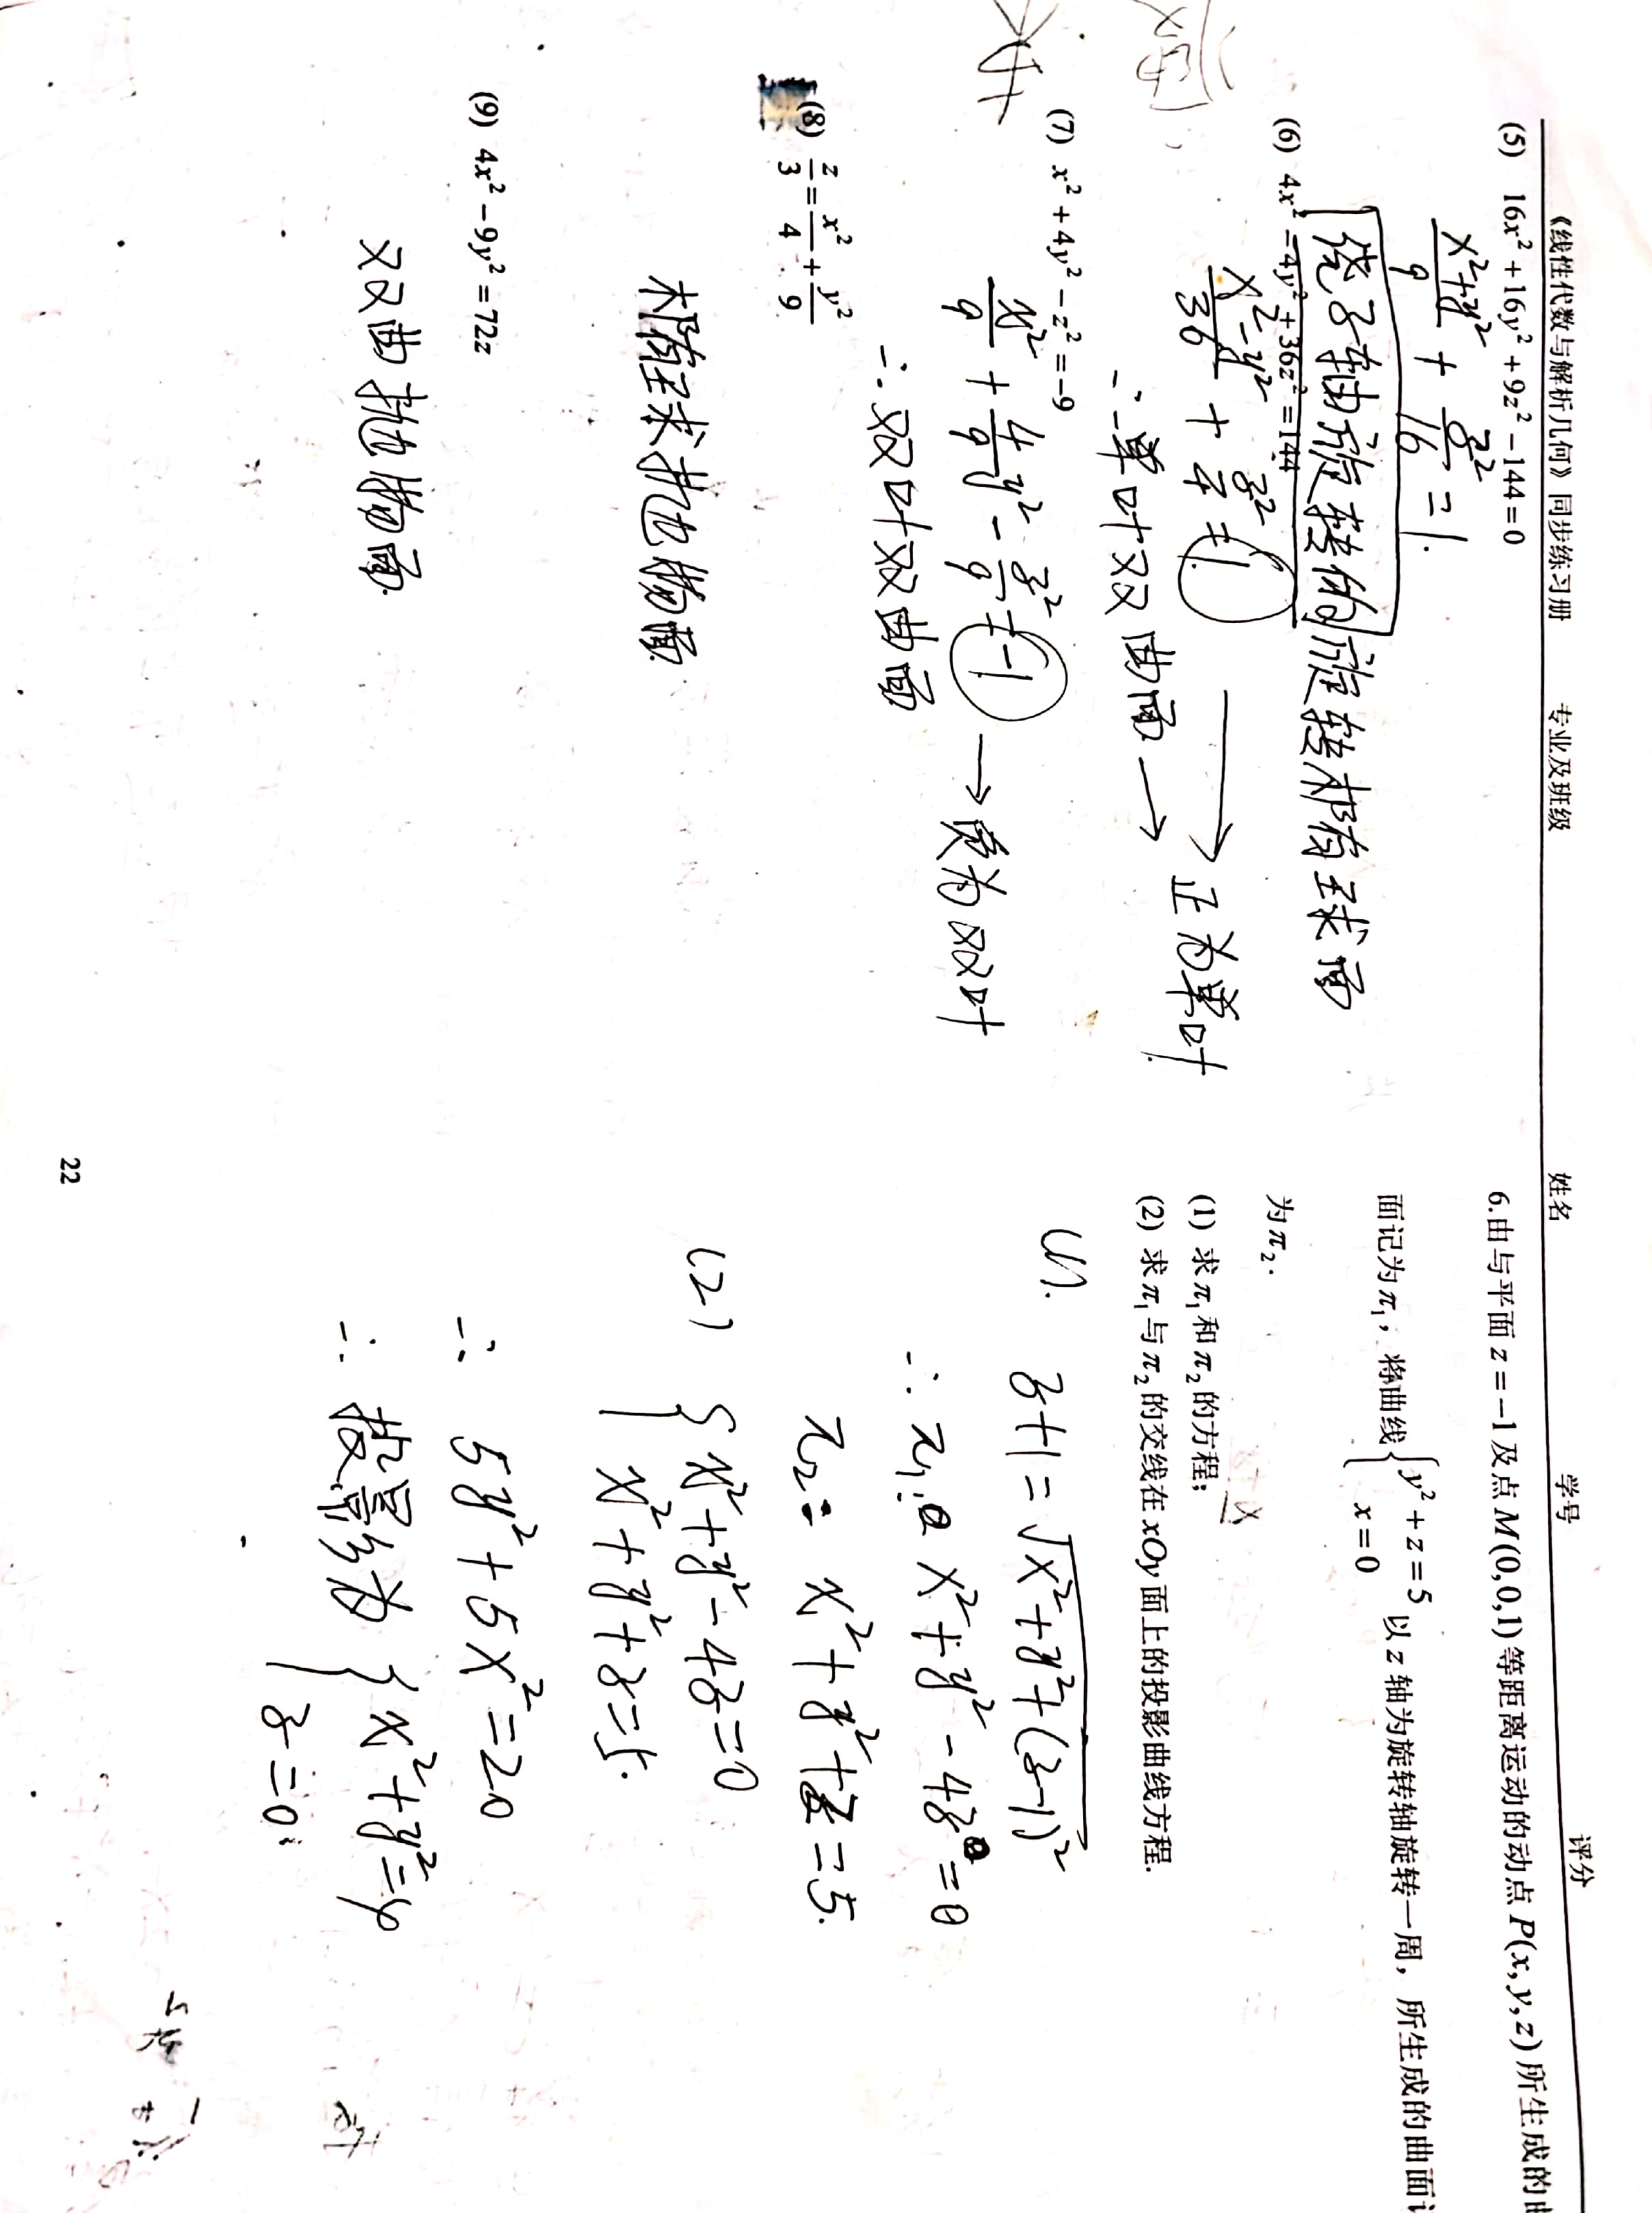 《线性代数与解析几何》同步练习册 专业及班级 姓名 学号 评分
(5) 16x² + 16y² + 9z² − 144 = 0
(x²+y²)/9 + z²/16 = 1.
绕z轴旋转的旋转椭球面
(6) 4x² − 4y² + 36z² = 144
(x²−y²)/36 + z²/4 = 1. → 正为单叶
∴ 单叶双曲面 →
(7) x² + 4y² − z² = −9
x²/9 + 4/9 y² − z²/9 = −1 → 负为双叶
∴ 双叶双曲面
(8) z/3 = x²/4 + y²/9
椭球抛物面.
(9) 4x² − 9y² = 72z
双曲抛物面.
6.由与平面 z = −1 及点 M(0,0,1) 等距离运动的动点 P(x,y,z) 所生成的
面记为 π₁, 将曲线 { y² + z = 5
x = 0 以 z 轴为旋转轴旋转一周, 所生成的曲面
为 π₂.
(1) 求 π₁ 和 π₂ 的方程;
(2) 求 π₁ 与 π₂ 的交线在 xOy 面上的投影曲线方程.
(1). z+1 = √x²+y²+(z−1)²
∴ π₁: x²+y²−4z = 0
π₂: x²+y²+z = 5.
(2) { x²+y²−4z=0
x²+y²+z=5.
∴ 5y²+5x²=20
∴ 投影为 { x²+y²=4
z=0.
22